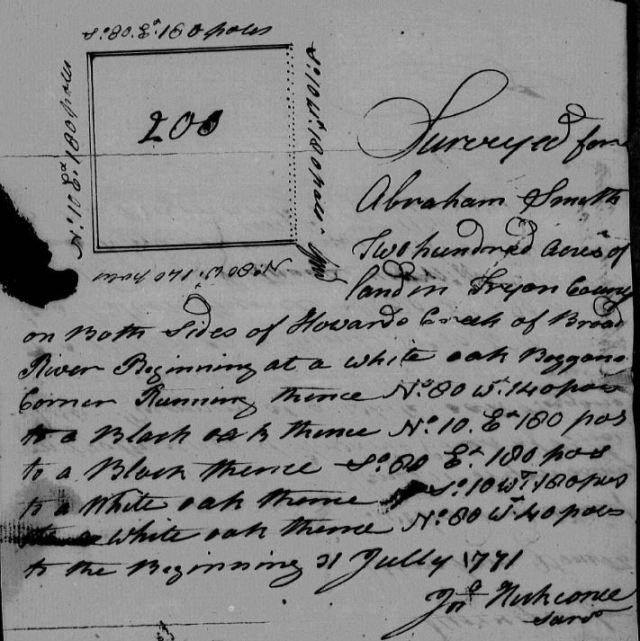 So. 80. Et. 180 poles
No. 10 Et. 180 poles
200
So. 10 Wt. 180 poles
No. 80 W. 140 poles
Surveyed for
Abraham Smith
Two hundred acres of
land in Tryon County
on Both Sides of Howards Creek of Broad
River Beginning at a white oak
Corner Running thence No. 80 Wt. 140 pos
to a Black oak thence No. 10. Et. 180 pos
to a Black thence So. 80 Et. 180 pos
to a White oak thence So. 10 Wt. 180 pos
to a White oak thence No. 80 Wt. 40 poles
to the Beginning 31 Jully 1771
Jno
Survr